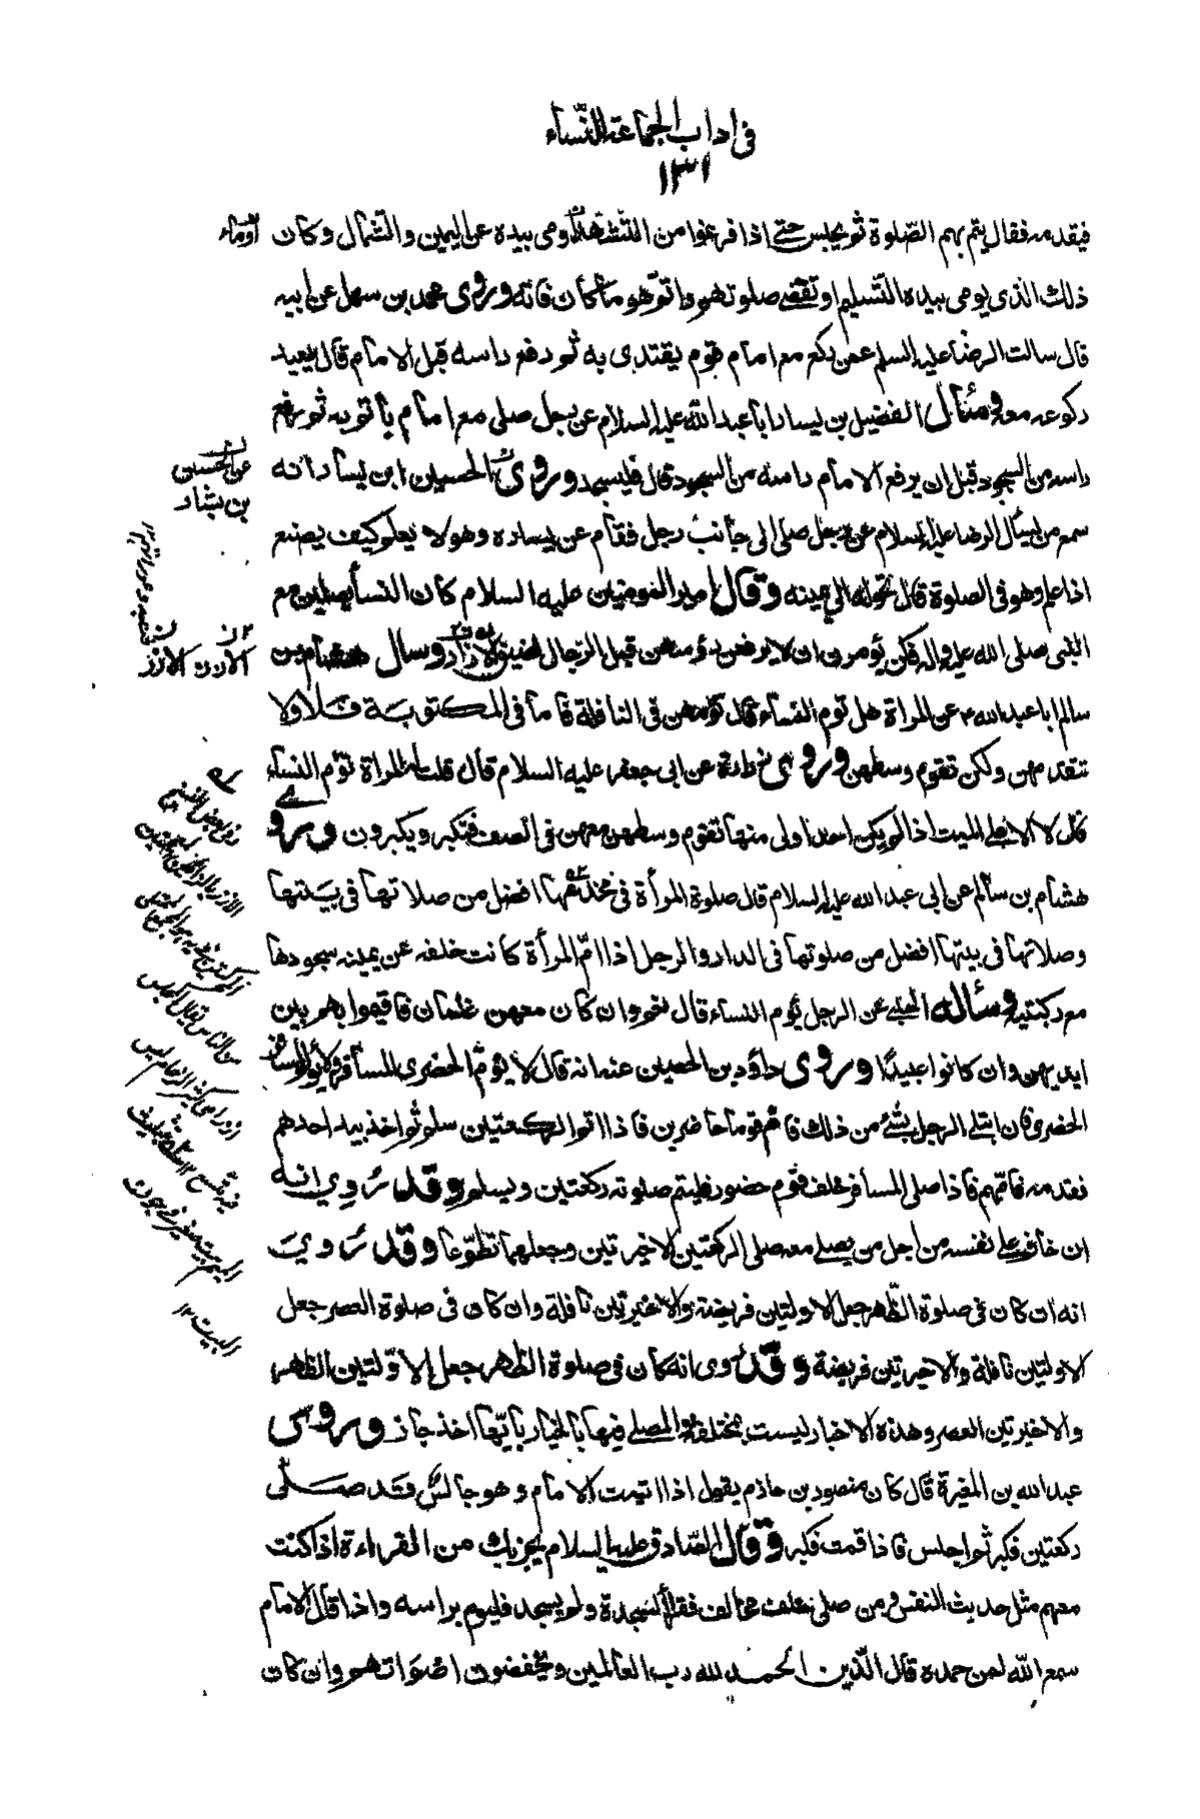 فى اداب الجماعة للنساء
١٣١
فيقدمه فقال يتم بهم الصّلوة ثم يجلس حتى اذا فرغوا من التشهد اومى بيده عن اليمين والشمال وكان
ذلك الذى يومى بيده التسليم او تقضى صلوتهم واتم هو ما كان فاته وروى محمد بن سهل عن ابيه
قال سالت الرضا عليه السلم عمن ركع مع امام قوم يقتدى به ثم رفع راسه قبل الامام قال يعيد
ركوعه معه وسئال الفضيل بن يسار ابا عبد الله عليه السلام عن رجل صلى مع امام ياتم به ثم رفع
راسه من السجود قبل ان يرفع الامام راسه من السجود قال فليسجد وروى الحسين ابن يسار انه
سمع من يسأل الرضا عليه السلام عن رجل صلى الى جانب رجل فقام عن يساره وهو لا يعلم كيف يصنع
اذا علم وهو فى الصلوة قال يحوله الى يمينه وقال امير المومنين عليه السلام كان النسأ يصلين مع
النبى صلى الله عليه واله فكن يؤمرن ان لا يرفعن رؤسهن قبل الرجال لضيق الازر وسال هشام بن
سالم ابا عبد الله ٤ عن المراة هل توم النساء قال تومهن فى النافلة فاما فى المكتوبة فلا ولا
تتقدمهن ولكن تقوم وسطهن وروى زرارة عن ابى جعفر عليه السلام قال قلت له المراة تؤم النساء
قال لا الا على الميت اذا لم يكن احدا ولى منها تقوم وسطهن معهن فى الصف فتكبر ويكبرون وروى
هشام بن سالم عن ابى عبد الله عليه السلام قال صلوة المرأة فى مخدعها افضل من صلاتها فى بيتها
وصلاتها فى بيتها افضل من صلوتها فى الدار والرجل اذا امّ المرأة كانت خلفه عن يمينه سجودها
مع ركبتيه وسأله الحلبى عن الرجل يؤم النساء قال نعم وان كان معهن غلمان فاقيموا بهم بين
ايديهن وان كانوا عبيدًا وروى داؤد بن الحصين عنه انه قال لا يؤم الحضرى المسافر ولا يؤم المسافر
الحضرى فان ابتلى الرجل بشئ من ذلك فام قوما حاضرين فاذا اتم الركعتين سلم ثم اخذ بيد احدهم
فقدمه فامهم فاذا صلى المسافر خلف قوم حضور فليتم صلوته ركعتين ويسلم وقد روى انه
ان خاف على نفسه من اجل من يصلى معه صلى الركعتين الاخيرتين وجعلهما تطوّعا وقد روى
انه ان كان فى صلوة الظّهر جعل الاولتين فريضة والاخيرتين نافلة وان كان فى صلوة العصر جعل
الاولتين نافلة والاخيرتين فريضة وقد روى انه كان فى صلوة الظهر جعل الاوّلتين الظهر
والاخيرتين العصر وهذه الاخبار ليست بمختلفة والمصلى فيها بالخيار بايّها اخذ جاز وروى
عبد الله بن المغيرة قال كان منصور بن حازم يقول اذا اتيت الامام وهو جالس وقد صلّى
ركعتين فكبر ثم اجلس فاذا قمت فكبر وقال الصّادق عليه السلام يجزيك من القراءة اذا كنت
معهم مثل حديث النفس ومن صلى خلف مخالف فقرأ السجدة ولم يسجد فليوم براسه واذا قال الامام
سمع الله لمن حمده قال الّذين الحمد لله رب العالمين ويخفضون اصواتهم وان كان
اوماء
عن الحسين
بن بشار
الازر
البيت ١٢